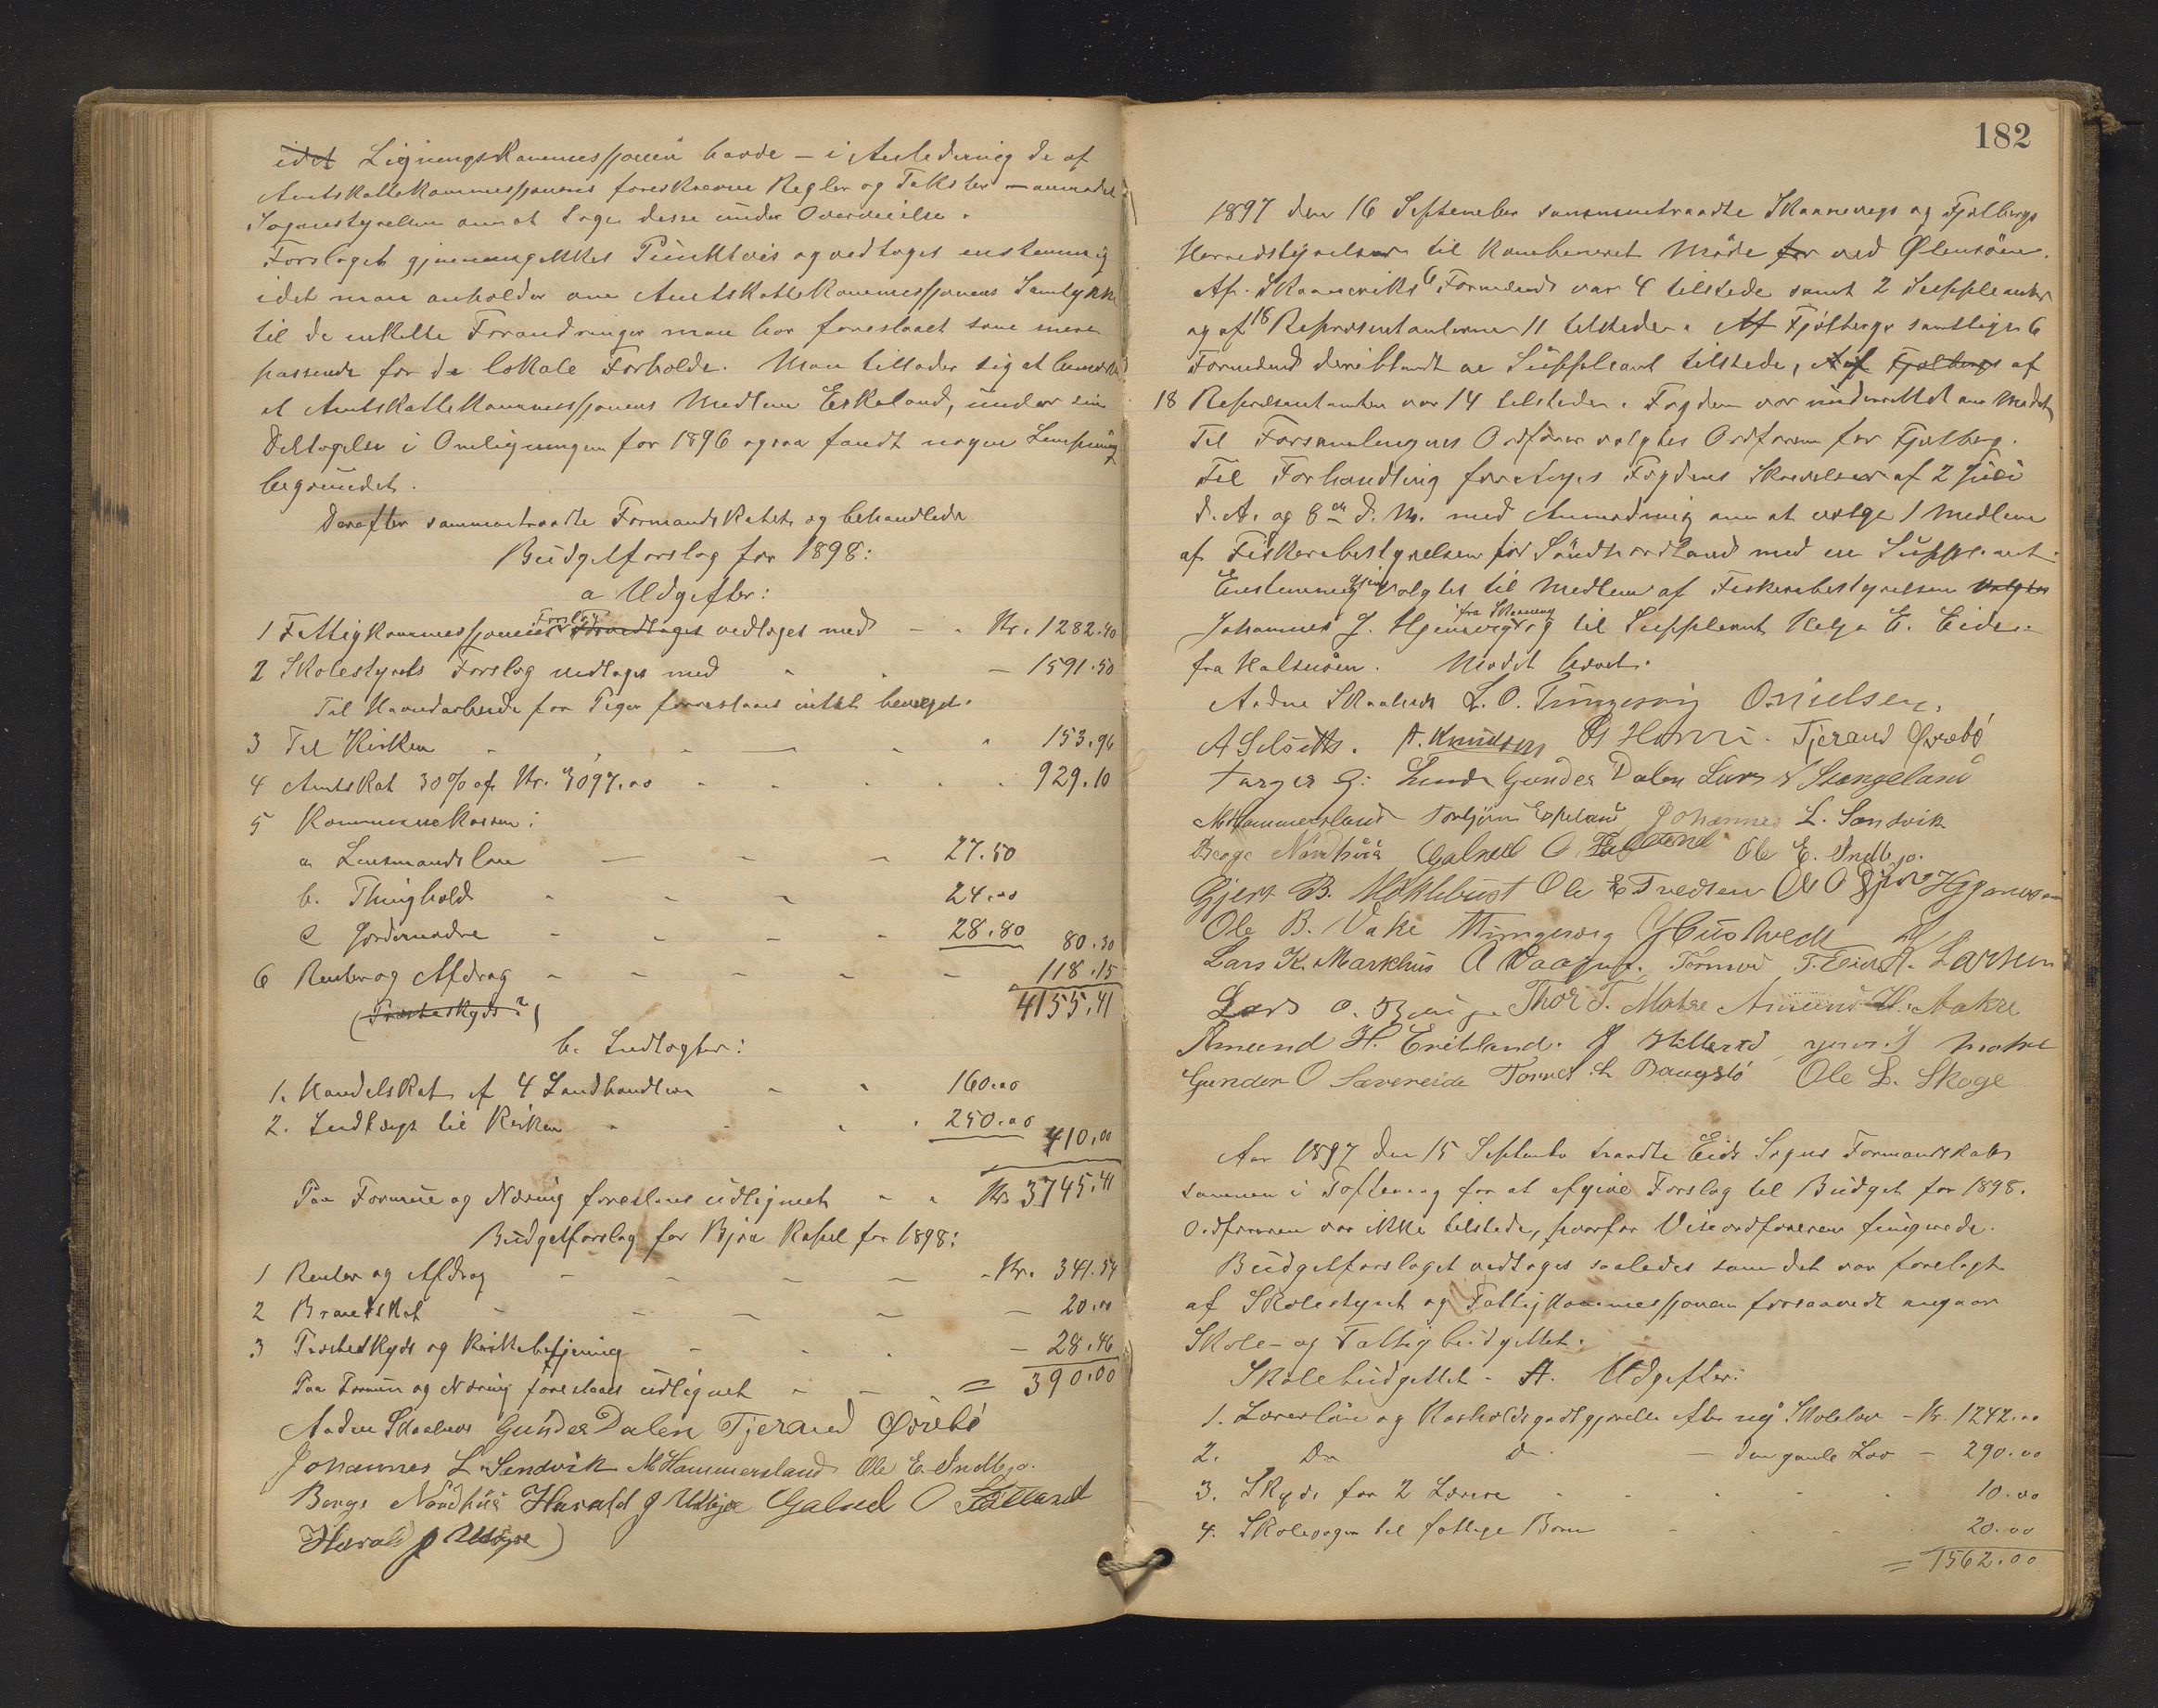 idet Ligningskommissjonen havde – i Anledning de af
Amtskattekommissjonens foreskrevne Regler og Takster – anmodet
Sognestyrelsen om at tage disse under Overveielse.
Forslaget gjennemgikkes Punktvis og vedtoges enstemmig
idet man anholder om Amtskattekommissjonens Samtykke
til de enkelte Forandringer man har foreslaaet som mere
passende for de lokale Forholde. Man tillader sig at bemærke
at Amtskattekommissjonens Medlem Eskeland, under sin
Deltagelse i Omligningen for 1896 ogsaa fandt nogen Lempning
begrundet.
Derefter sammentraadte Formandskabet og behandlede
Budgetforslag for 1898:
a Udgifter:
1 Fattigkommissjonens Forslag vedtoges med – Kr. 1282.40
2 Skolestyrets Forslag vedtoges med – 1591.50
Til Haandarbeide for Piger forreslaaes intet bevilget.
3 Til Kirken 153.96
4 Amtskat 30% af Kr. 3097.00 929.10
5 Kommunekassen:
a Lensmandsløn 27.50
b. Thinghold 24.00
c Jordemødre 28.80 80.30
6 Renter og Afdrag 118.15
4155.41
(Præsteskyds?)
b. Indtægter:
1. Handelskat af 4 Landhandlere 160.00
2. Indtægt til Kirken 250.00 410.00
Paa Formue og Næring foreslaaes udlignet Kr. 3745.41
Budgetforslag for Bjoa Kapel for 1898:
1 Renter og Afdrag Kr. 341.54
2 Brandskat 20.00
3 Præsteskyds og Kirkebetjening – 28.46
Paa Formue og Næring foreslaaes udlignet = 390.00
Aadne Skaalnes Gunder Dalen Tjerand Øvrebø
Johannes L. Sandvik M Hammersland Ole E. Indbjo.
Berge Nordhuus Harald J Udbjoe Galned O Tælland
Harald J Udbjoe
182
1897 den 16 September sammentraadte Skaanevigs og Fjelbergs
Herredstyrelser til kombineret Møde for ved Ølensøen.
Af Skaaneviks 6 Formænd var 4 tilstede samt 2 Suppleanter
og af 18 Repræsentanterne 11 tilstede. Af Fjelbergs samtlige 6
Formænd deriblandt en Suppleant tilstede, Af Fjelbergs af
18 Repræsentanter var 14 tilstede. Fogden var underrettet om Mødet.
Til Forsamlingens Ordfører valgtes Ordføreren for Fjelberg.
Til Forhandling foretoges Fogdens Skrivelser af 2 Juli
d. A. og 8de d. M. med Anmodning om at vælge 1 Medlem
af Fiskeribestyrelsen for Søndhordland med en Suppleant.
Enstemmig gjenvalgtes til Medlem af Fiskeribestyrelsen valgtes
Johannes J. Hjemevig fra Skaanevig og til Suppleant Helge E. Eide
fra Halsnøen. Mødet hævet.
Aadne Skaalnes L. O. Tungesvig O. Nielsen.
A Selsaas. A. Knudsen Tjerand Øvrebø
Torger G. Lunde Gunder Dalen Lars N Stangeland
M Hammersland Torbjørn Espeland Johannes L. Sandvik
Berge Nordhuus Galned O. Tælland Ole E. Indbjo.
Gjert B. Møklebust Ole E Tvedten
Ole B. Vake Tungesvig J Hustvedt
Lars K. Markhus A Vaage Tormod T. Eide H. Larsen
Lars O. Thor T. Matre Amund H. Aakre
Amund H. Eritland. Matre
Gunder O Sævereide Tormod L. Baugstø Ole L. Skoge
Aar 1897 den 15 September traadte Eids Sogns Formandskab
sammen i Toftevaag for at afgive Forslag til Budget for 1898.
Ordføreren var ikke tilstede, hvorfor Viseordføreren fungerede.
Budgetforslaget vedtoges saaledes som det var forelagt
af Skolestyret og Fattigkommissjonen forsaavidt angaar
Skole- og Fattigbudgettet.
Skolebudgettet. A. Udgifter:
1. Lærerløn og Kostholdsgodtgjørelse efter ny Skolelov – Kr. 1242.00
2. Do Do – den gamle Lov – 290.00
3. Skyds for 2 Lærere 10.00
4. Skolebøger til fattige Børn 20.00
= 1562.00